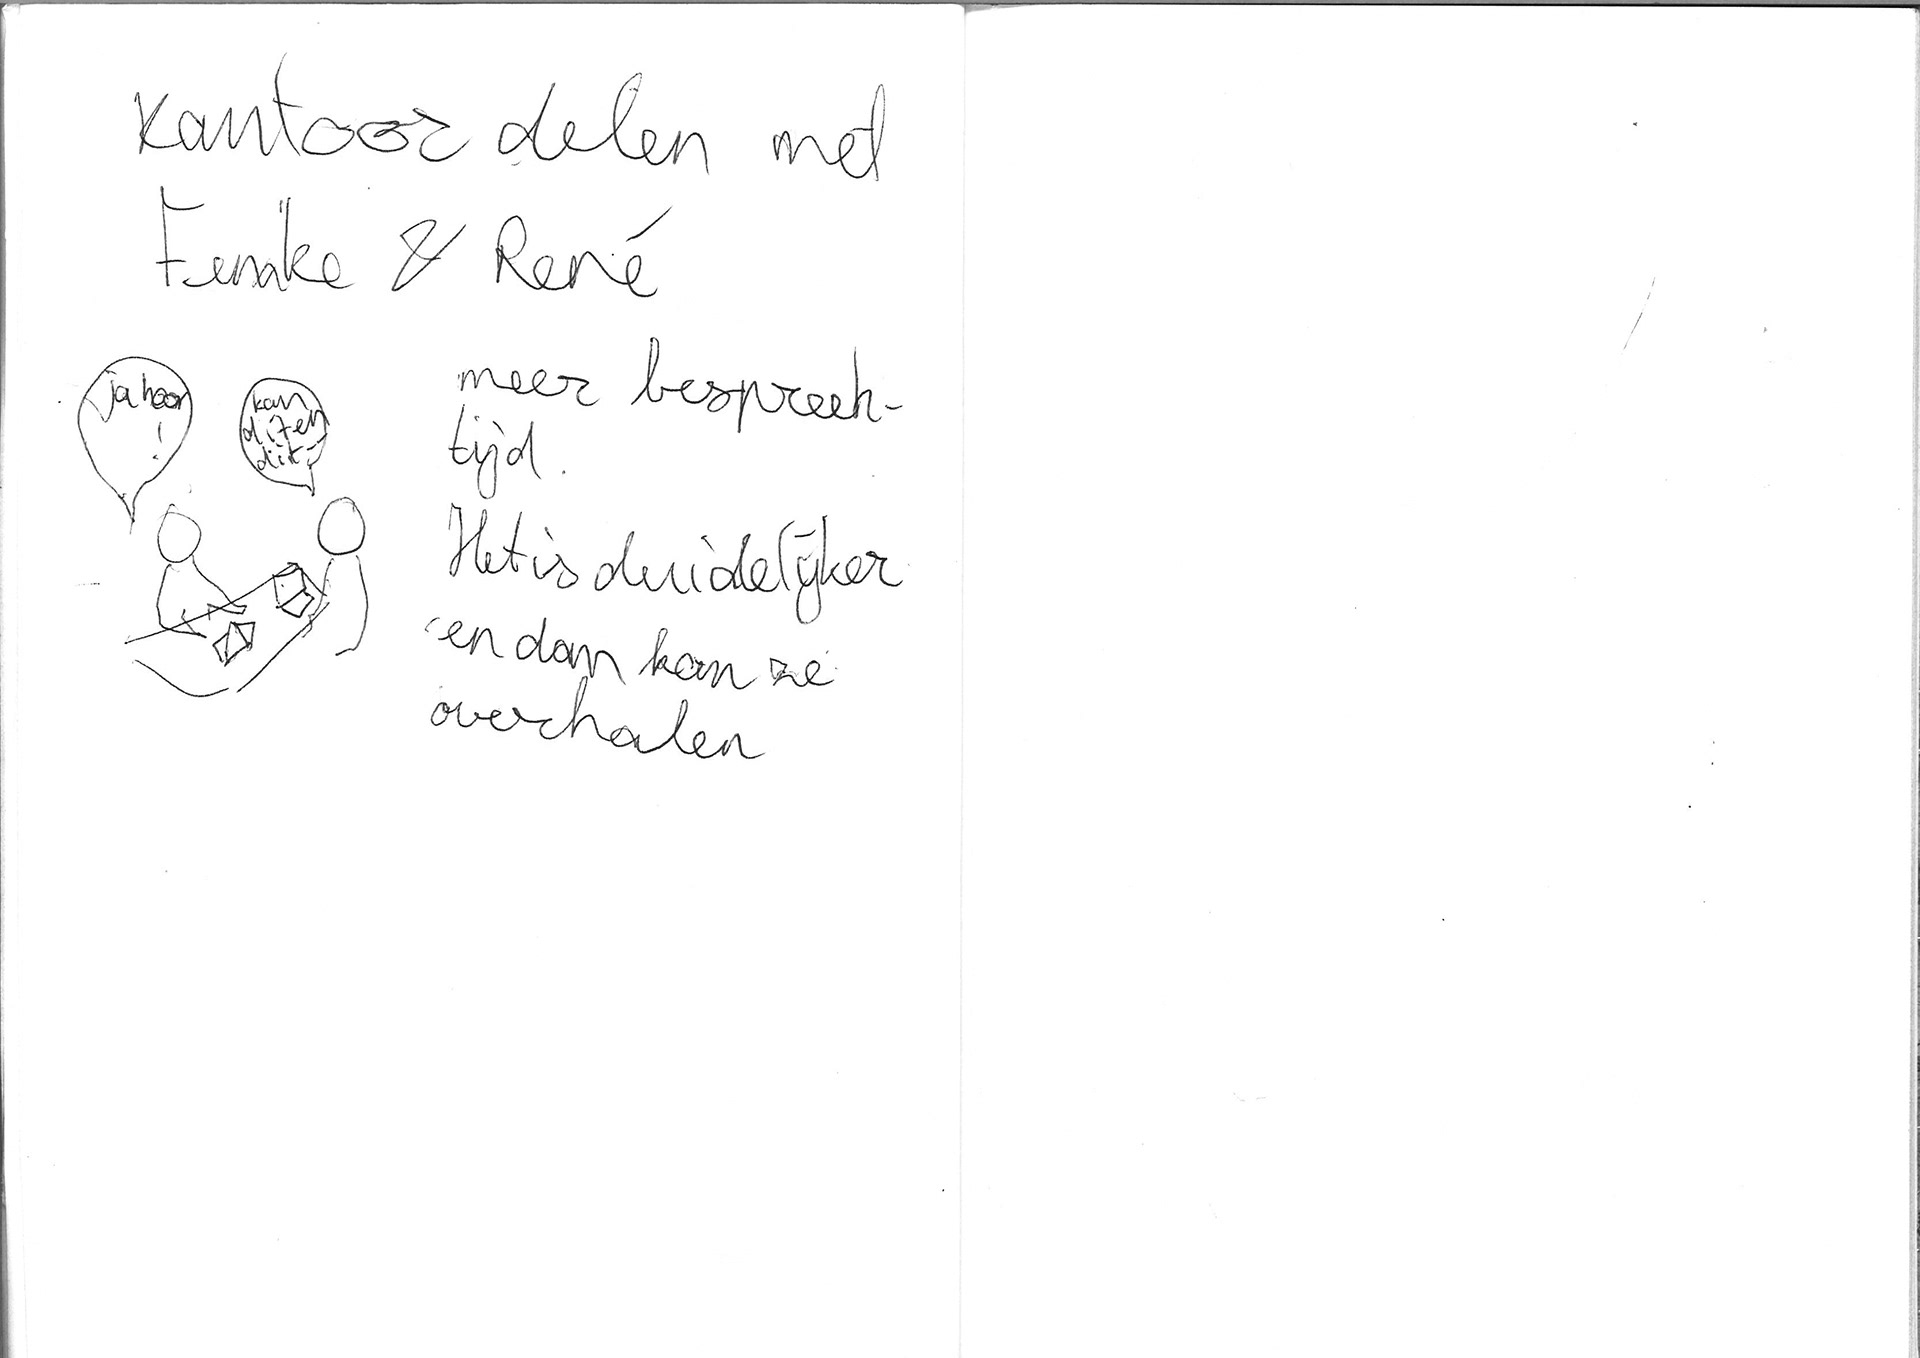 Kantoor delen met
Femke & René
ja hoor
!
kan
dit en
dit?
meer bespreek-
tijd.
Het is duidelijker
en dan kan ze
overhalen